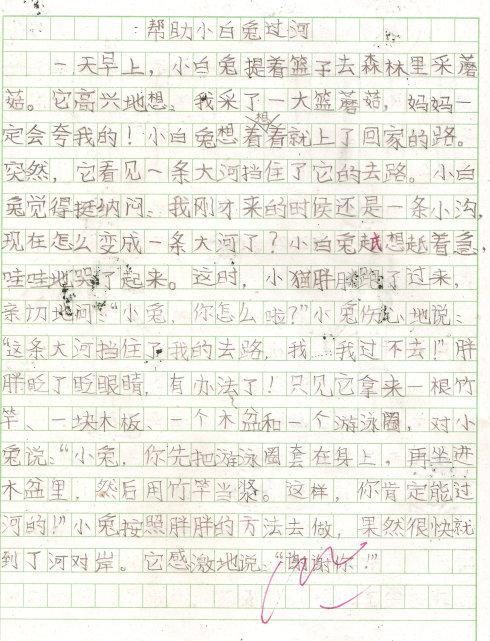 帮助小白兔过河
一天早上，小白兔提着篮子去森林里采蘑
菇。它高兴地想：我采了一大篮蘑菇，妈妈一
定会夸我的！小白兔想着想着就上了回家的路。
突然，它看见一条大河挡住了它的去路。小白
兔觉得挺纳闷：我刚才来的时侯还是一条小沟，
现在怎么变成一条大河了？小白兔越想越着急，
哇哇地哭了起来。这时，小猫胖胖跑了过来，
亲切地问：“小兔，你怎么啦？”小兔伤心地说：
“这条大河挡住了我的去路，我……我过不去！”胖
胖眨了眨眼睛，有办法了！只见它拿来一根竹
竿、一块木板、一个木盆和一个游泳圈，对小
兔说：“小兔，你先把游泳圈套在身上，再坐进
木盆里，然后用竹竿当桨。这样，你肯定能过
河的！”小兔按照胖胖的方法去做，果然很快就
到了河对岸。它感激地说：“谢谢你！”